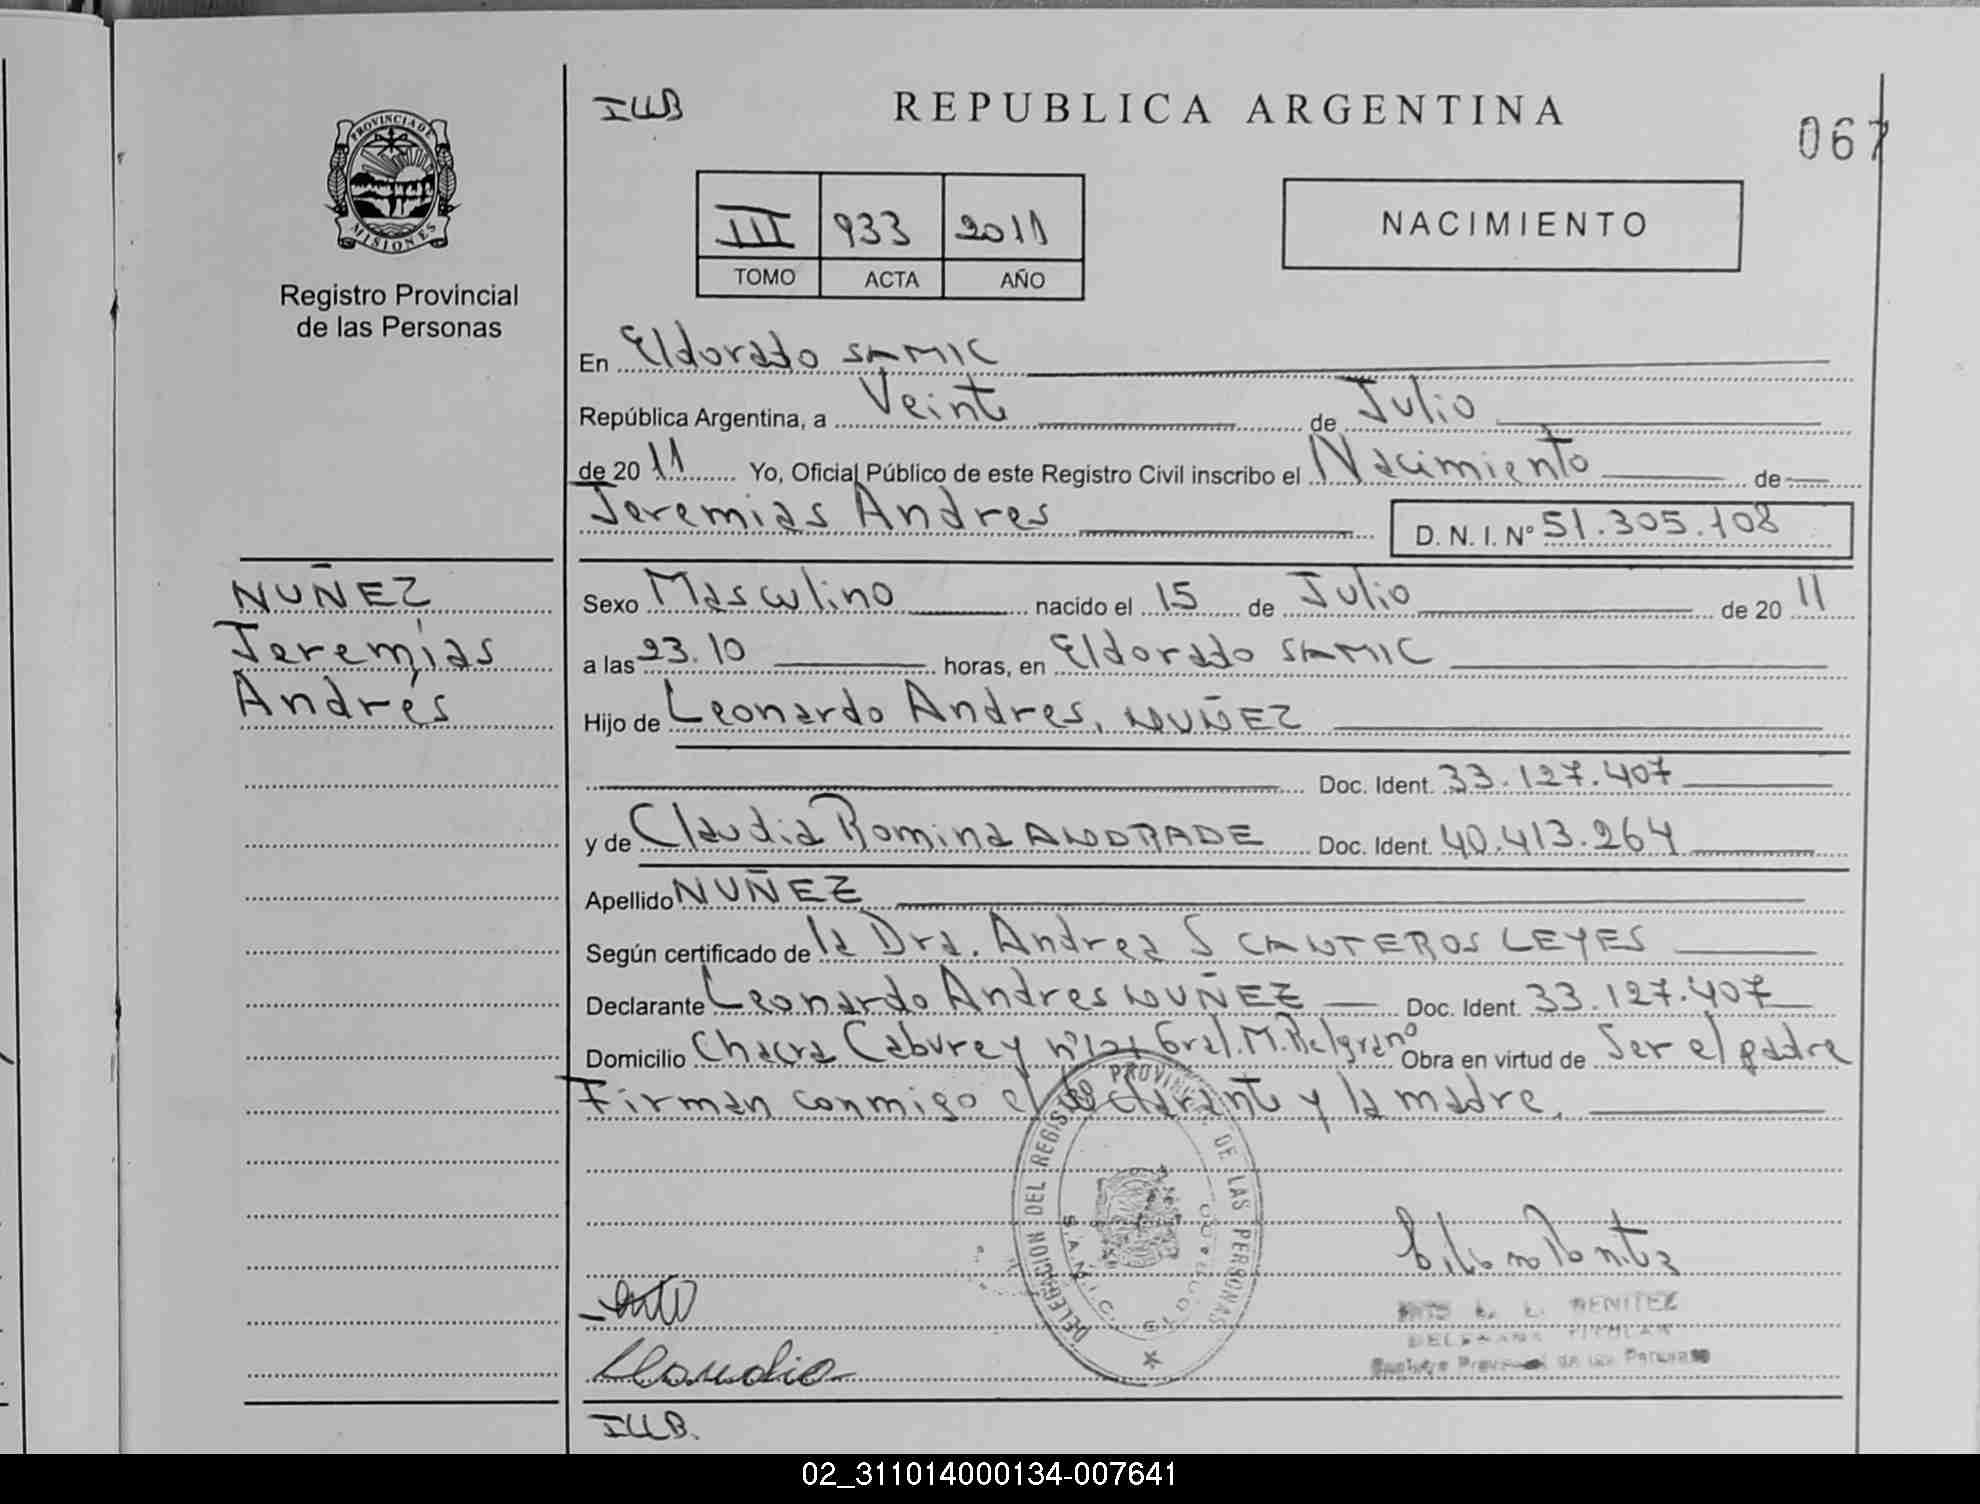 IUB
REPUBLICA ARGENTINA
067
PROVINCIA DE
MISIONES
Registro Provincial
de las Personas
III 933 2011
TOMO ACTA AÑO
NACIMIENTO
En Eldorado SAMIC
República Argentina, a Veinte de Julio
de 2011 Yo, Oficial Público de este Registro Civil inscribo el Nacimiento de
Jeremias Andres D. N. I. Nº 51.305.108
NUÑEZ
Jeremías
Andrés
Sexo Masculino nacido el 15 de Julio de 2011
a las 23.10 horas, en Eldorado SAMIC
Hijo de Leonardo Andres, NUÑEZ
Doc. Ident. 33.127.407
y de Claudia Romina ANDRADE Doc. Ident. 40.413.264
Apellido NUÑEZ
Según certificado de la Dra. Andrea S CANTEROS LEYES
Declarante Leonardo Andres NUÑEZ Doc. Ident. 33.127.407
Domicilio Chacra Caburey nº121 Gral. M. Belgrano Obra en virtud de Ser el padre
Firman conmigo el declarante y la madre.
DELEGACION DEL REGISTRO PROVINCIAL DE LAS PERSONAS
S.A.M.I.C. ELDORADO
BENITEZ
TITULAR
Claudia
IUB.
02_311014000134-007641